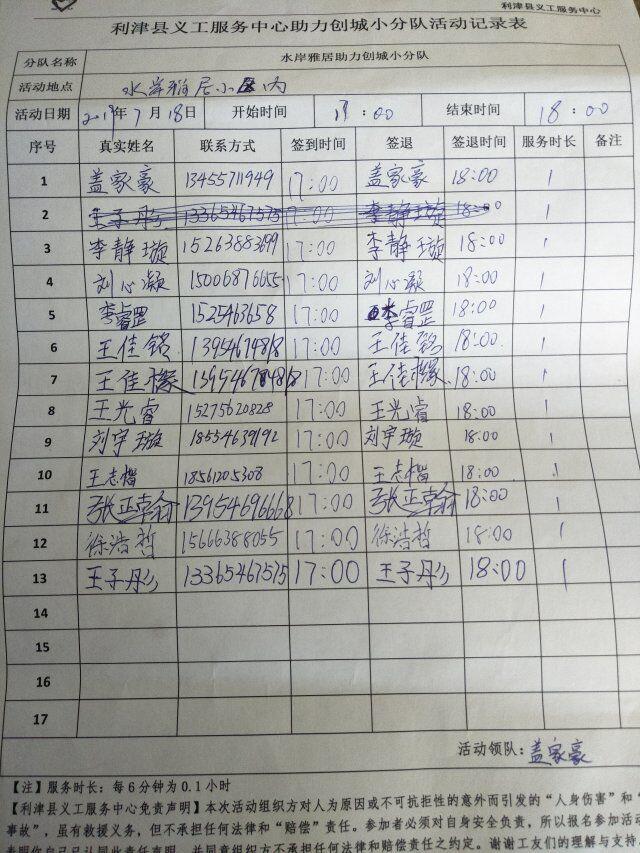 利津县义工服务中心
利津县义工服务中心助力创城小分队活动记录表
分队名称 水岸雅居助力创城小分队
活动地点 水岸雅居小区内
活动日期 2019年7月18日 开始时间 17:00 结束时间 18:00
序号 真实姓名 联系方式 签到时间 签退 签退时间 服务时长 备注
1 盖家豪 13455711949 17:00 盖家豪 18:00 1
2 王子彤 13365467575 17:00 李静璇 18:00
3 李静璇 15263883699 17:00 李静璇 18:00 1
4 刘心凝 15006876655 17:00 刘心凝 18:00 1
5 李睿罡 1525463658 17:00 李睿罡 18:00 1
6 王佳铭 13954674818 17:00 王佳铭 18:00 1
7 王佳橼 17:00 王佳橼 18:00 1
8 王光睿 15275620828 17:00 王光睿 18:00 1
9 刘宇璇 18554639192 17:00 刘宇璇 18:00 1
10 王志楷 18561205308 17:00 王志楷 18:00 1
11 张正翰 13954696668 17:00 张正翰 18:00 1
12 徐浩哲 15666388055 17:00 徐浩哲 18:00 1
13 王子彤 13365467575 17:00 王子彤 18:00 1
14
15
16
17
活动领队：盖家豪
【注】服务时长：每6分钟为0.1小时
【利津县义工服务中心免责声明】本次活动组织方对人为原因或不可抗拒性的意外而引发的“人身伤害”和“
事故”，虽有救援义务，但不承担任何法律和“赔偿”责任。参加者必须对自身安全负责，所以报名参加活动
表明你自己已认同此责任声明，并同意组织方不承担任何法律和赔偿责任之约定。谢谢工友们的理解与支持